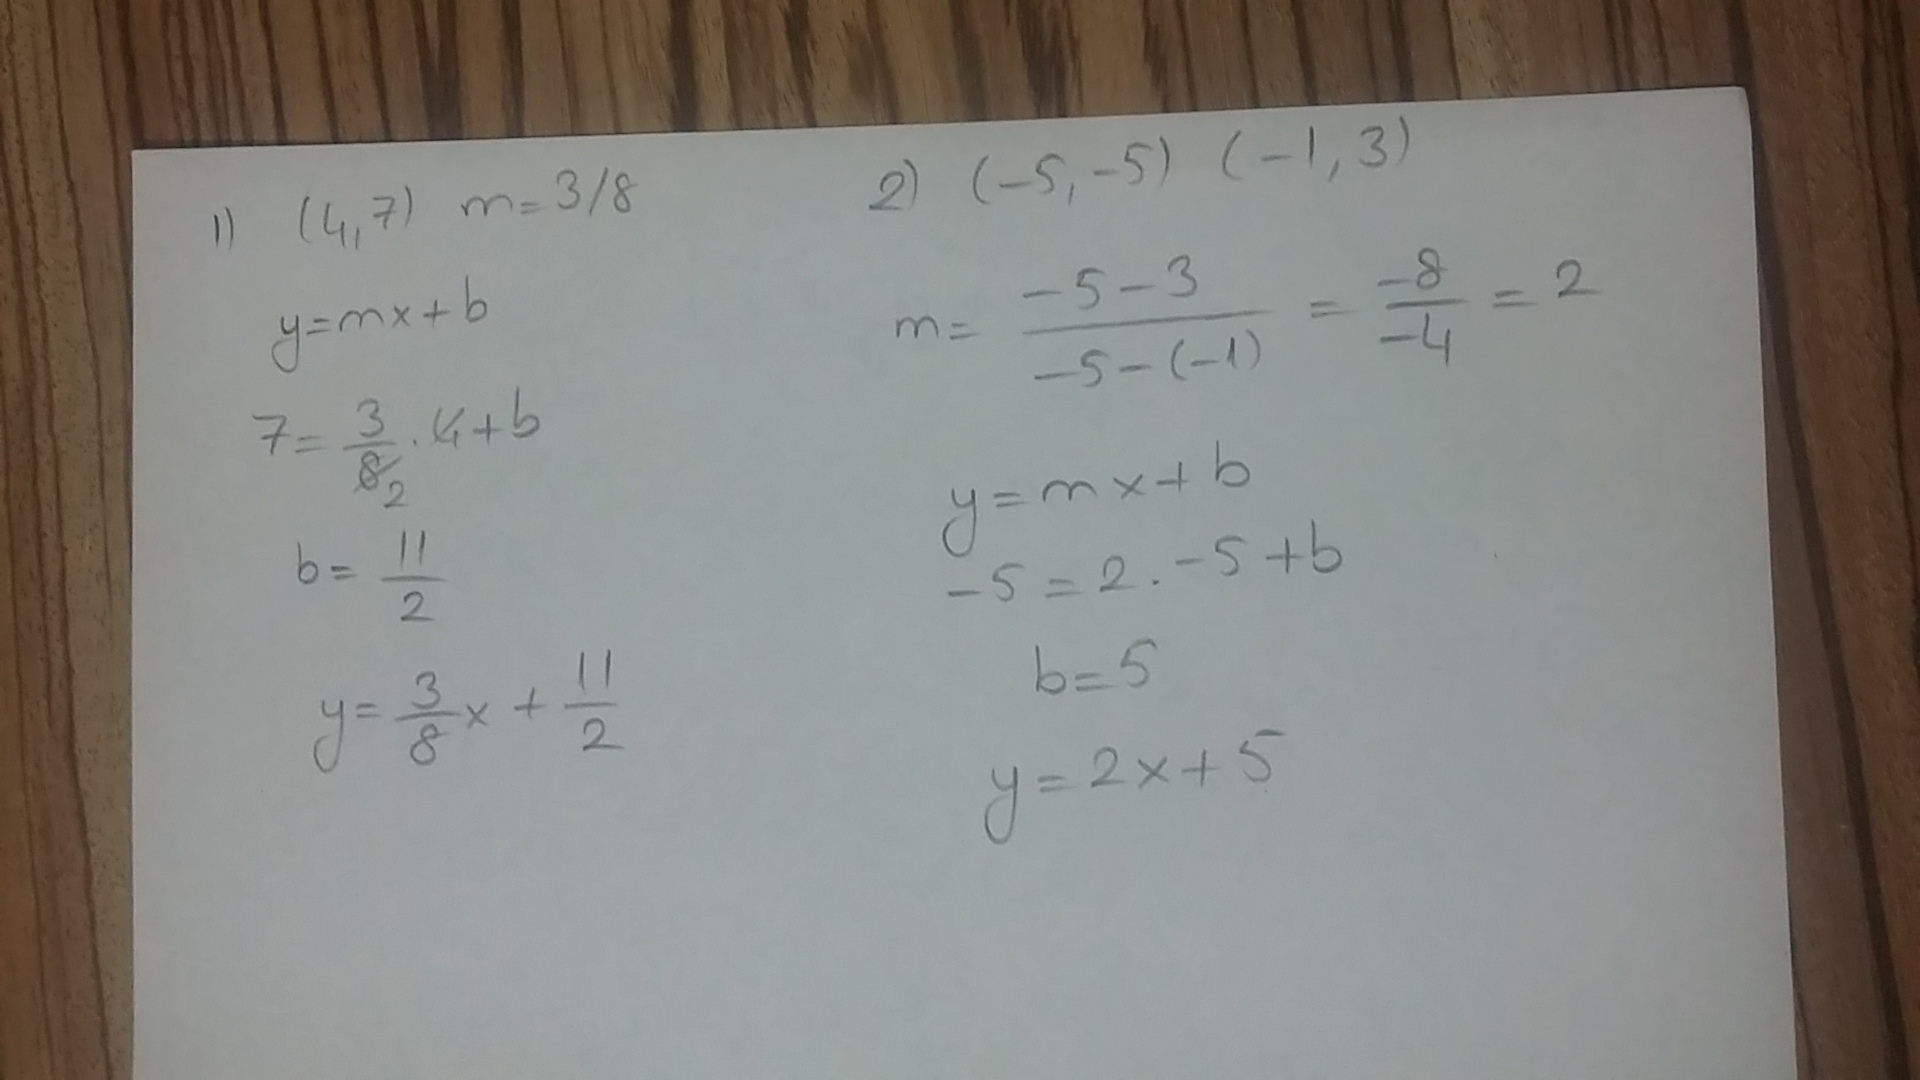 1) (4,7) m=3/8
y=mx+b
7=3/8 2 . 4+b
b=11/2
y=3/8x+11/2
2) (-5,-5) (-1,3)
m=-5-3/-5-(-1)=-8/-4=2
y=mx+b
-5=2.-5+b
b=5
y=2x+5